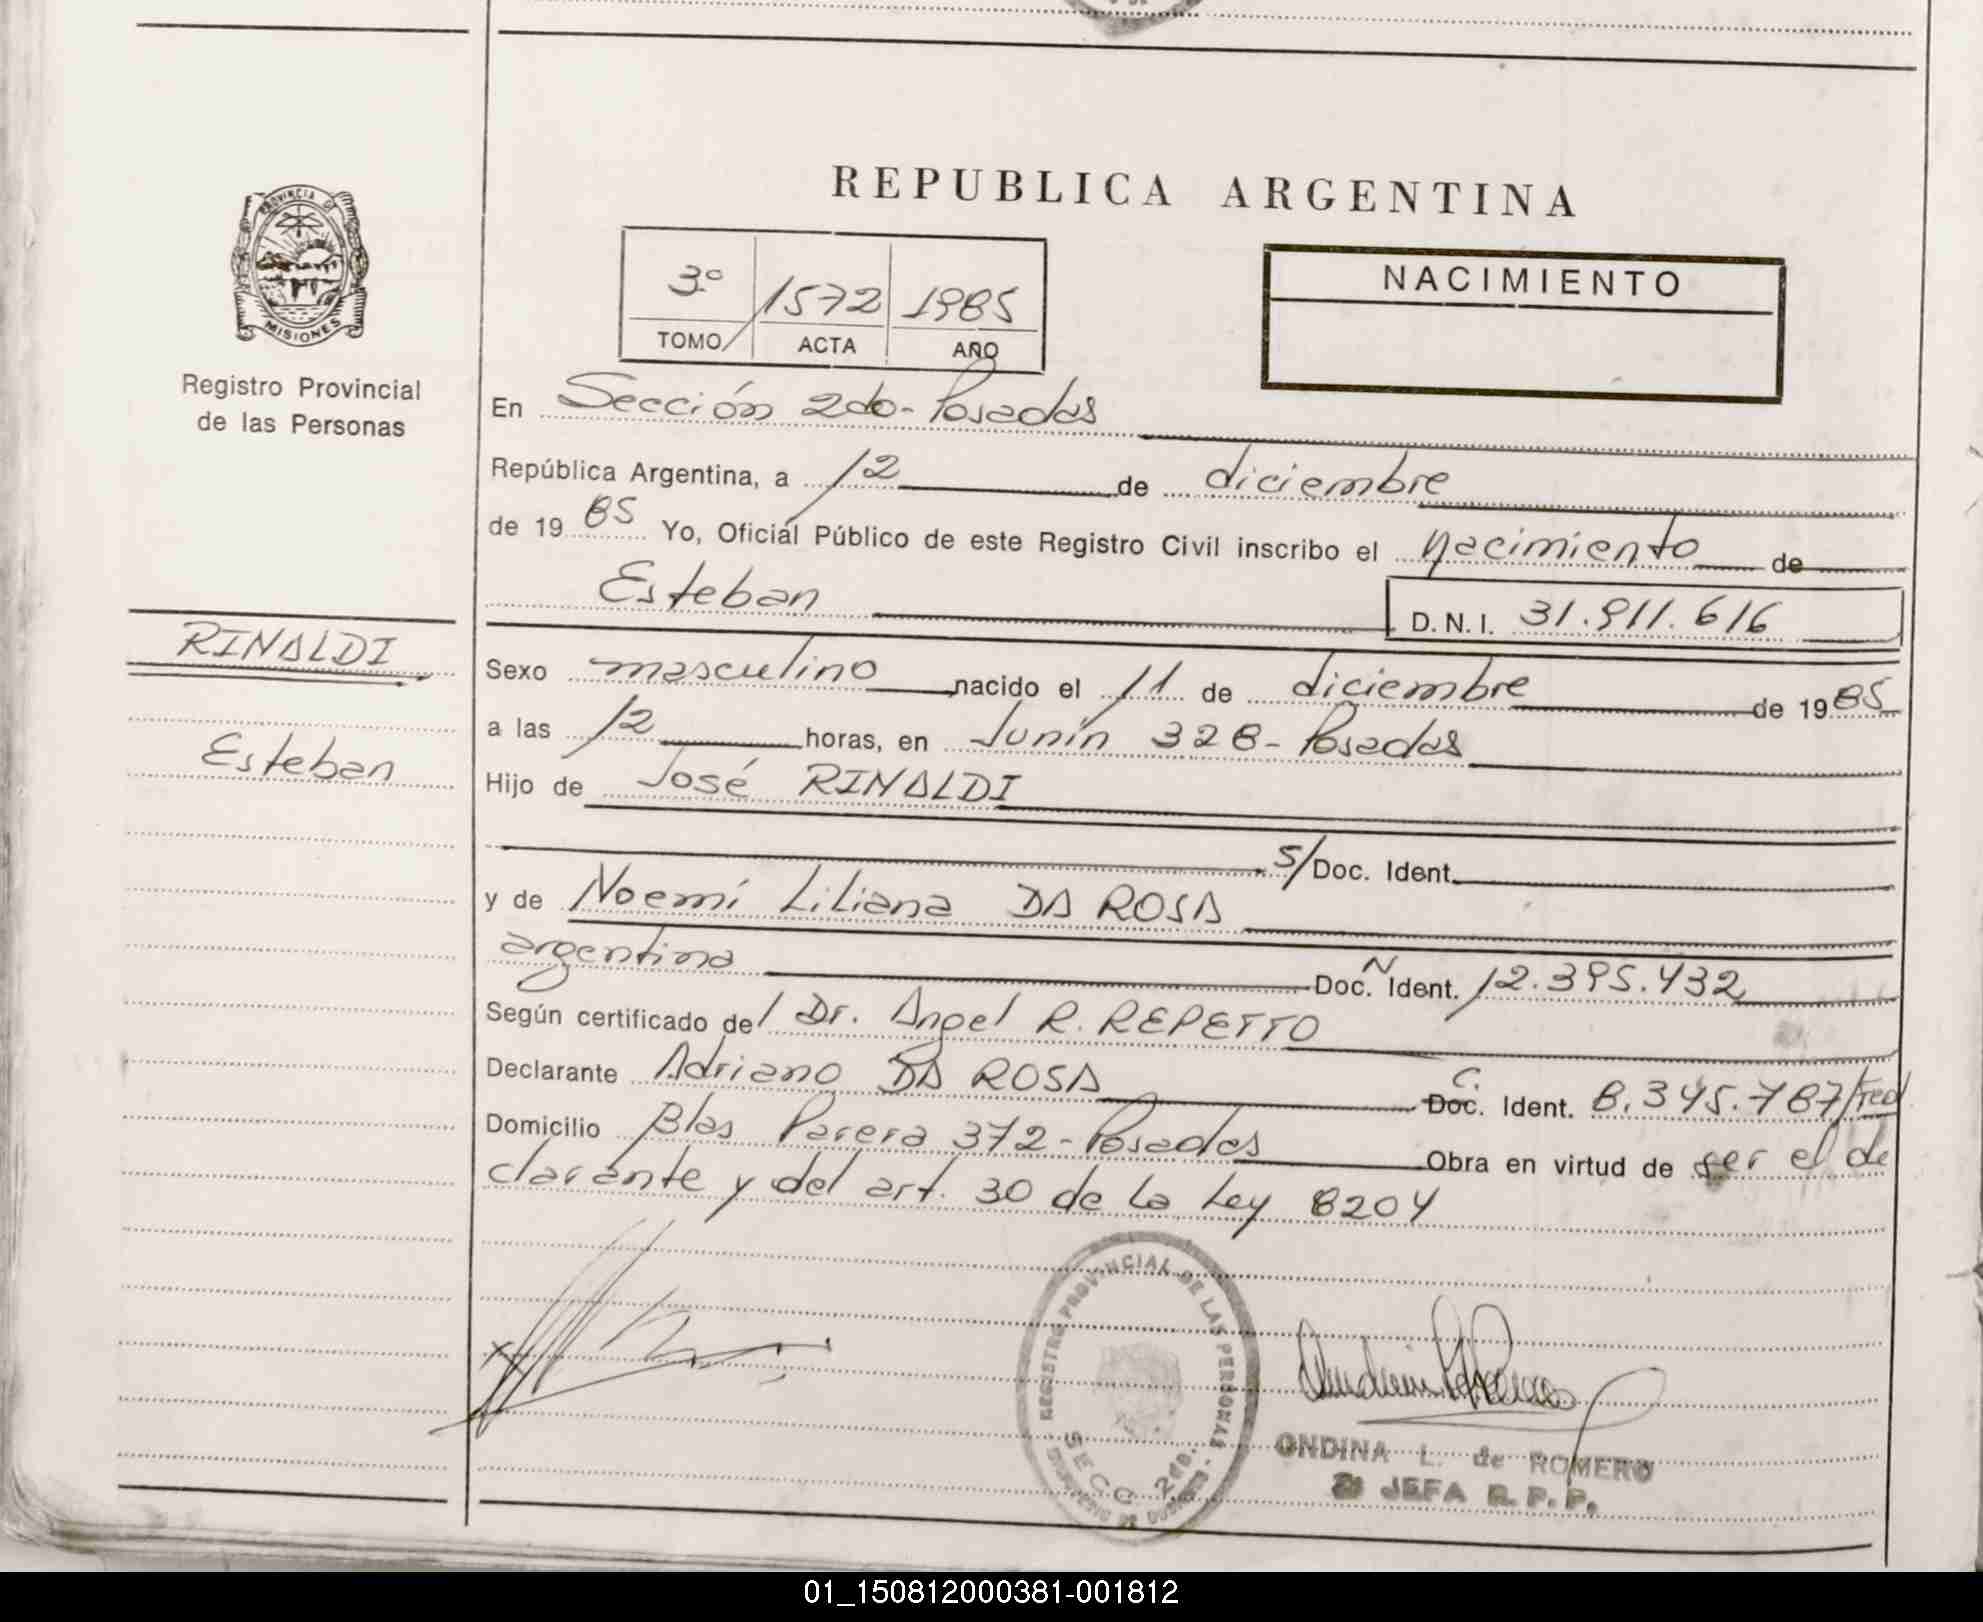 REPUBLICA ARGENTINA
PROVINCIA DE
MISIONES
Registro Provincial
de las Personas
3º 1572 1985
TOMO ACTA AÑO
NACIMIENTO
En Sección 2do - Posadas
República Argentina, a 12 de diciembre
de 1985 Yo, Oficial Público de este Registro Civil inscribo el nacimiento de
Esteban D.N.I. 31.911.616
RINALDI
Esteban
Sexo masculino nacido el 11 de diciembre de 1985
a las 12 horas, en Junín 328 - Posadas
Hijo de José RINALDI
S/Doc. Ident.
y de Noemí Liliana DA ROSA
argentina Doc. N Ident. 12.395.432
Según certificado del Dr. Angel R. REPETTO
Declarante Adriano DA ROSA Doc. C. Ident. 8.345.787/Fed
Domicilio Blas Parera 372 - Posadas Obra en virtud de ser el de
clarante y del art. 30 de la Ley 8204
REGISTRO PROVINCIAL DE LAS PERSONAS
SECC. 2da.
ONDINA L. de ROMERO
JEFA R.P.P.
01_150812000381-001812